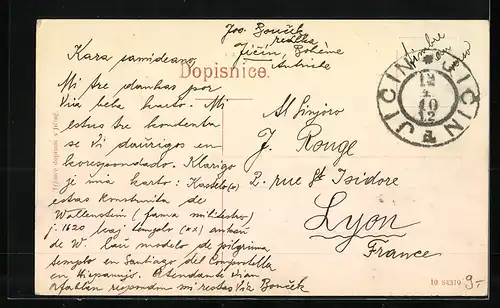 Jos. Bouček
realka
Jičín, Bohême
Autriche
Timbre
Dopisnice.
Kara samideano,
Mi tre dankas por
Via bela karto. Mi
estus tre kontenta
se Vi daŭrigos en
korespondado. Klarigo
je mia karto: Kastelo(x)
estas konstruita de
Wallenstein (fama militestro)
j. 1620 kaj templo (xx) ankaŭ
de W. laŭ modelo de pilgrima
templo en Santiago del Compostella
en Hispanujo. Atendante Vian
afablan respondon mi restas Via Bouček
JICIN JICIN
12
10
12
Al Sinjoro
J. Rouge
2. rue St Isidore
Lyon
France
10 84319
9-